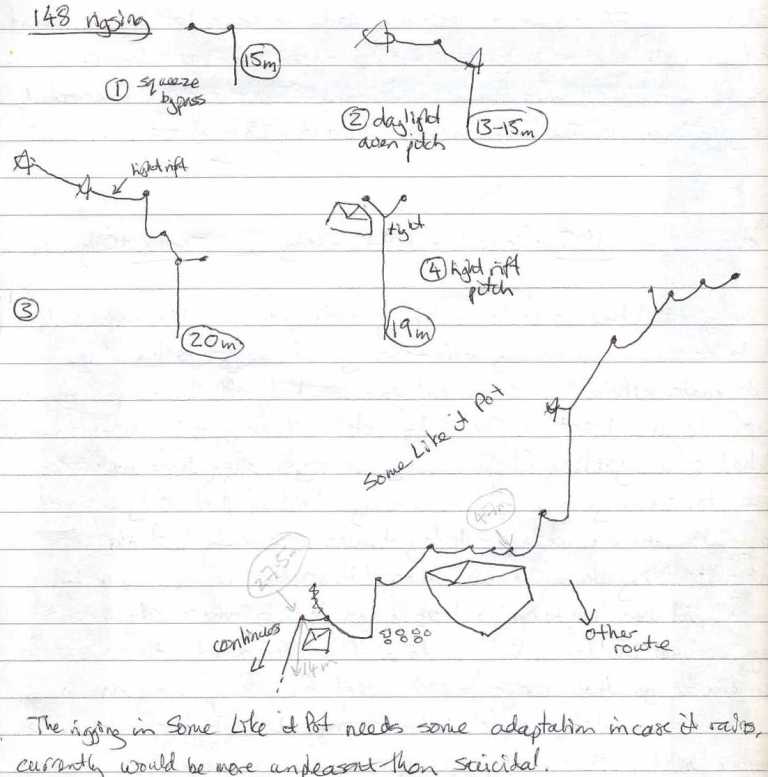 148 rigging
15m
① squeeze
bypass
② daylight
aven pitch
13-15m
tight rift
③
20m
tight
④ tight rift
pitch
19m
Some Like it Pot
27.5m
continues
14m
other
route
The rigging in Some Like it Pot needs some adaptation incase it rains,
currently would be more unpleasant than suicidal.